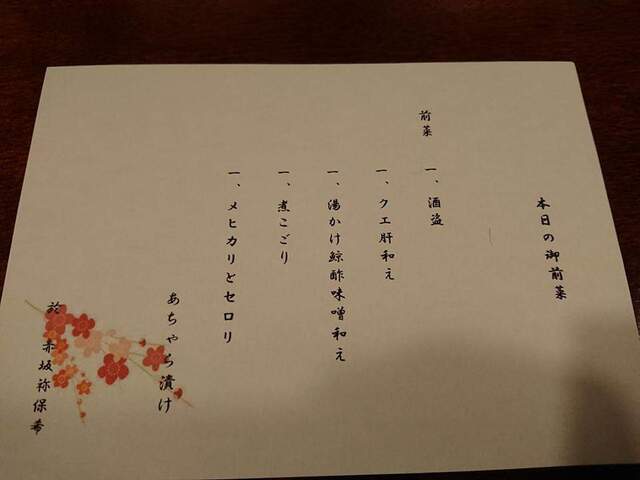 本日の御前菜
前菜
一、酒盗
一、クエ肝和え
一、湯かけ鯨酢味噌和え
一、煮こごり
一、メヒカリとセロリ
あちゃら漬け
於 赤坂祢保希